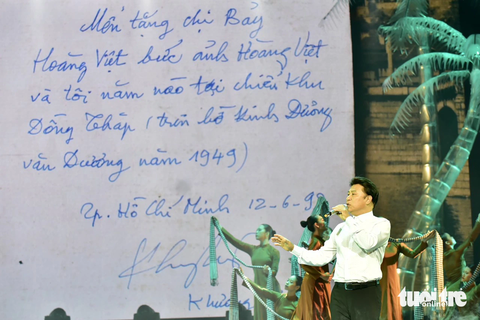 Mến tặng chị Bảy
Hoàng Việt bức ảnh Hoàng Việt
và tôi năm nào tại chiến khu
Đồng Tháp (trên bờ kinh Dưỡng
văn Dương năm 1949)
Tp. Hồ Chí Minh 12-6-9
tuổi trẻ
online
tuổi trẻ
online